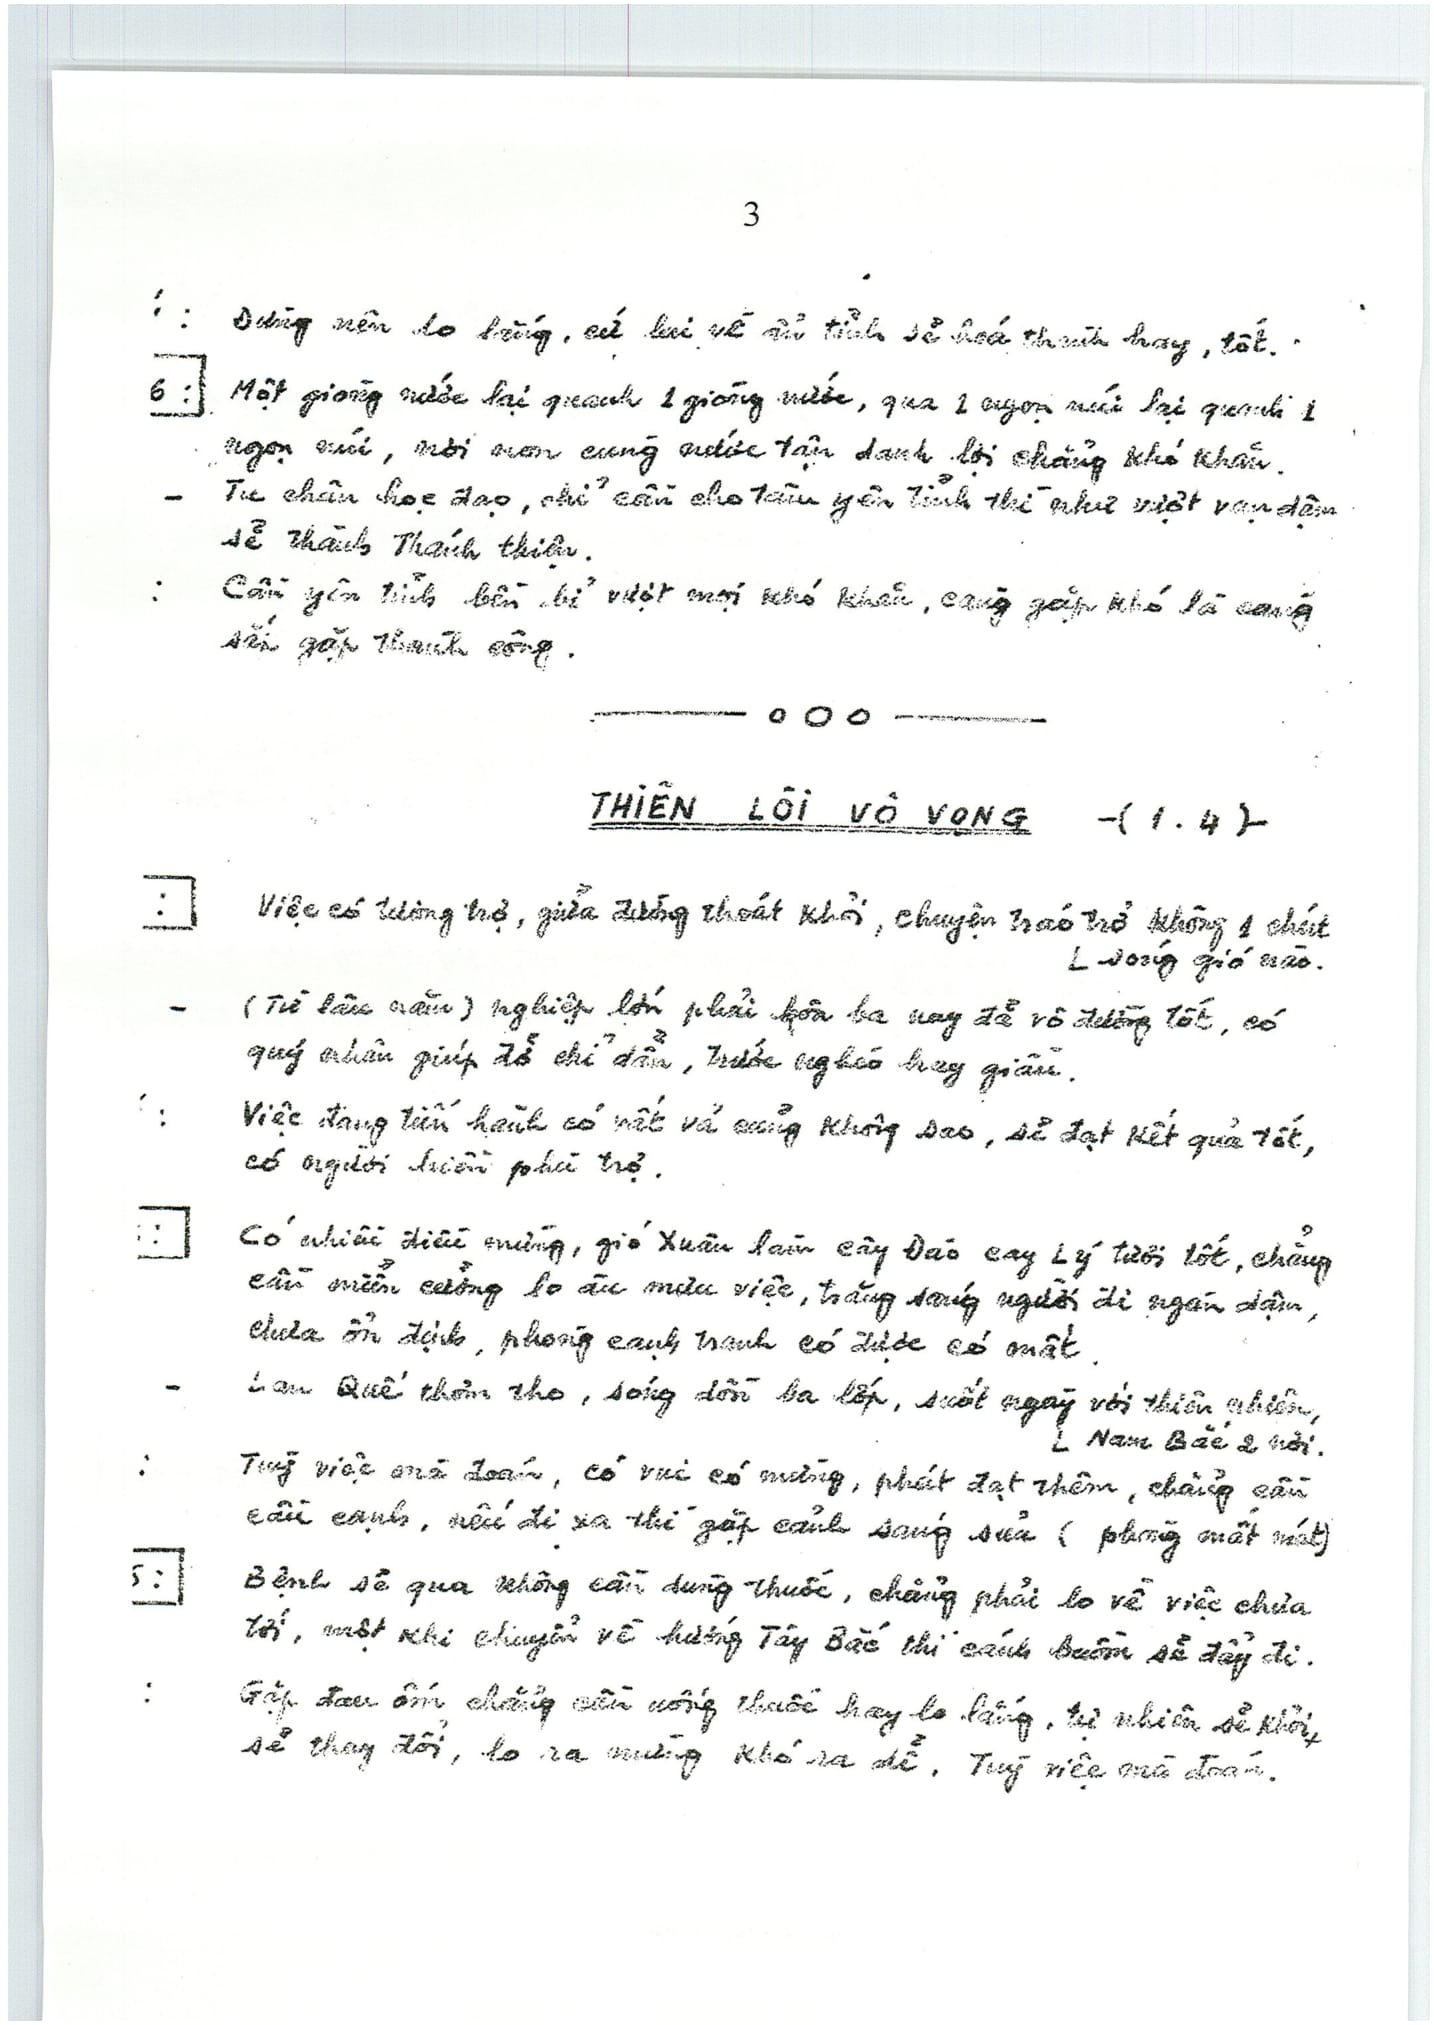 3
: Đừng nên lo lắng, cứ lui về ẩn tĩnh sẽ hoá thành hay, tốt.
6 : Một giòng nước lại quanh 1 giòng nước, qua 1 ngọn núi lại quanh 1
ngọn núi, nơi non cùng nước tận danh lợi chẳng khó khăn.
- Tu chân học đạo, chỉ cần cho tâm yên tĩnh thì như vượt vạn dậm
sẽ thành Thánh thiện.
: Cần yên tĩnh bền bỉ vượt mọi khó khăn, càng gặp khó là càng
sắp gặp thành công.
o O o
THIÊN LÔI VÔ VỌNG -( 1 . 4 )-
: Việc có tương trợ, giữa đường thoát khỏi, chuyện tráo trở không 1 chút
L sóng gió nào.
- (Từ lâu năm) nghiệp lớn phải bôn ba nay đã vô đường tốt, có
quý nhân giúp đỡ chỉ dẫn, trước nghèo hay giàu.
: Việc đang tiến hành có vất vả cũng không sao, sẽ đạt kết quả tốt,
có người hiền phù trợ.
: Có nhiều điều mừng, gió Xuân làm cây Đào cay Lý tươi tốt, chẳng
cần miễn cưỡng lo âu mưu việc, trăng sáng người đi ngàn dậm,
chưa ổn định, phòng cạnh tranh có được có mất.
- Lan Quế thơm tho, sóng dồn ba lớp, suốt ngày với thiên nhiên,
L Nam Bắc 2 nơi.
: Tuỳ việc mà đoán, có vui có mừng, phát đạt thêm, chẳng cần
cầu cạnh, nếu đi xa thì gặp cảnh sáng sủa ( phòng mất mát)
5 : Bệnh sẽ qua không cần dùng thuốc, chẳng phải lo về việc chưa
tới, một khi chuyển về hướng Tây Bắc thì cánh buồm sẽ đẩy đi.
: Gặp đau ốm chẳng cần uống thuốc hay lo lắng, tự nhiên sẽ khỏi,
sẽ thay đổi, lo ra mừng khó ra dễ. Tuỳ việc mà đoán.